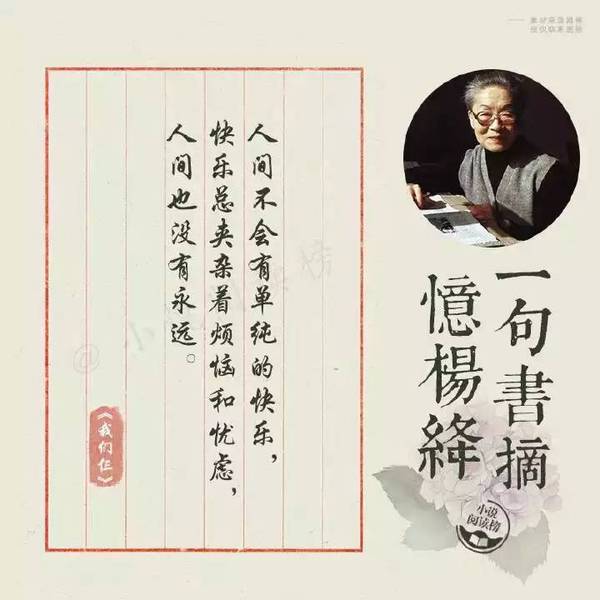 一句書摘
憶楊絳
人间不会有单纯的快乐，
快乐总夹杂着烦恼和忧虑，
人间也没有永远。
《我们仨》
小说
阅读榜